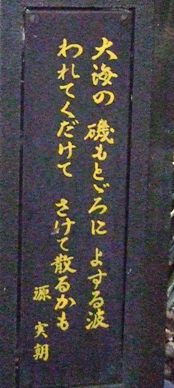 大海の 磯もとどろに よする波
われてくだけて さけて散るかも
源 実朝